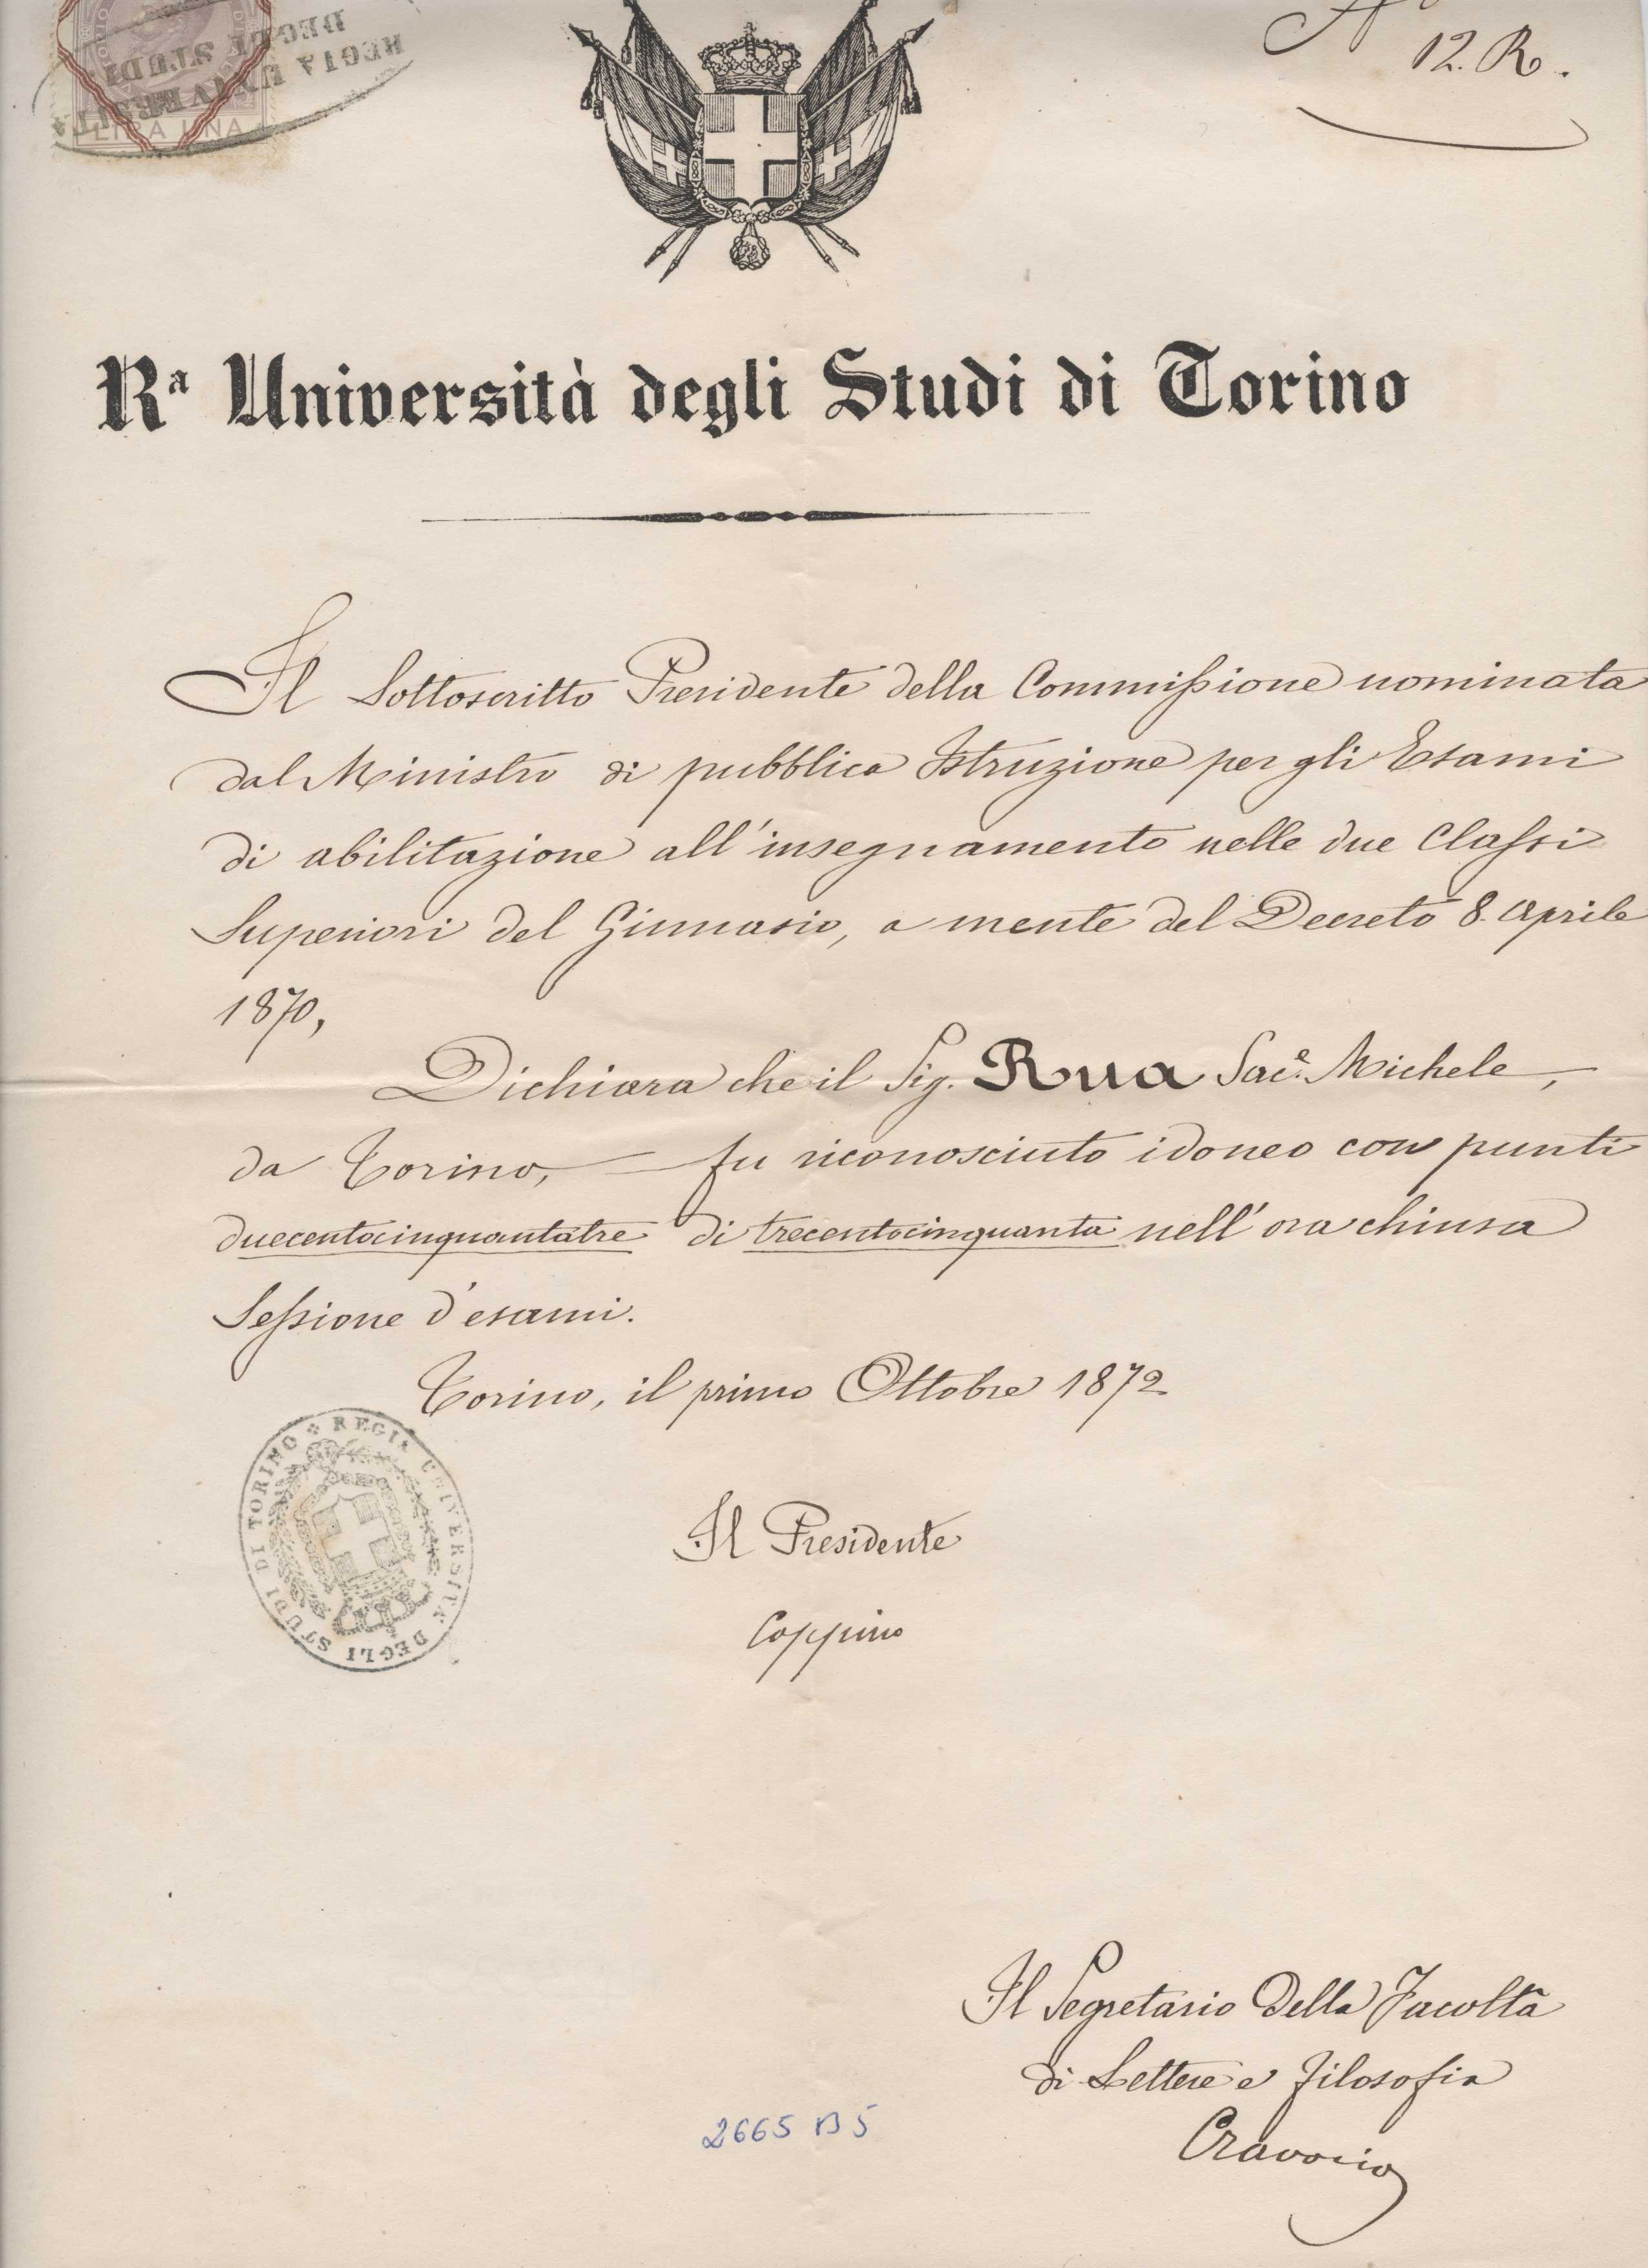 REGIA UNIVERSITÀ
DEGLI STUDI
LIRA UNA
N°
12. R.
Rª Università degli Studi di Torino
Il Sottoscritto Presidente della Commissione nominata
dal Ministro di pubblica Istruzione per gli Esami
di abilitazione all'insegnamento nelle due Classi
Superiori del Ginnasio, a mente del Decreto 8. Aprile
1870,
Dichiara che il Sig. Rua Sac.e Michele,
da Torino, fu riconosciuto idoneo con punti
duecentocinquantatre di trecentocinquanta nell'ora chiusa
Sessione d'esami.
Torino, il primo Ottobre 1872
REGIA UNIVERSITÀ DEGLI STUDI DI TORINO
Il Presidente
Coppino
Il Segretario della Facoltà
di Lettere e Filosofia
2665 B5